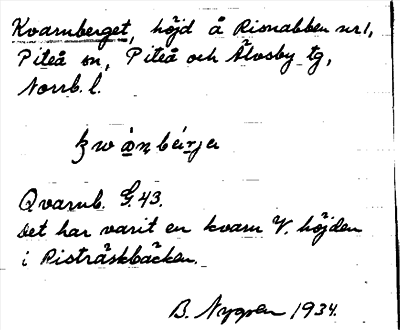 Kvarnberget, höjd å Risnabben nr 1,
Piteå sn, Piteå och Älvsby tg,
Norrb. l.
Qvarnb. G. 43.
Det har varit en kvarn V. höjden
i Risträskbäcken.
B. Nygren 1934.